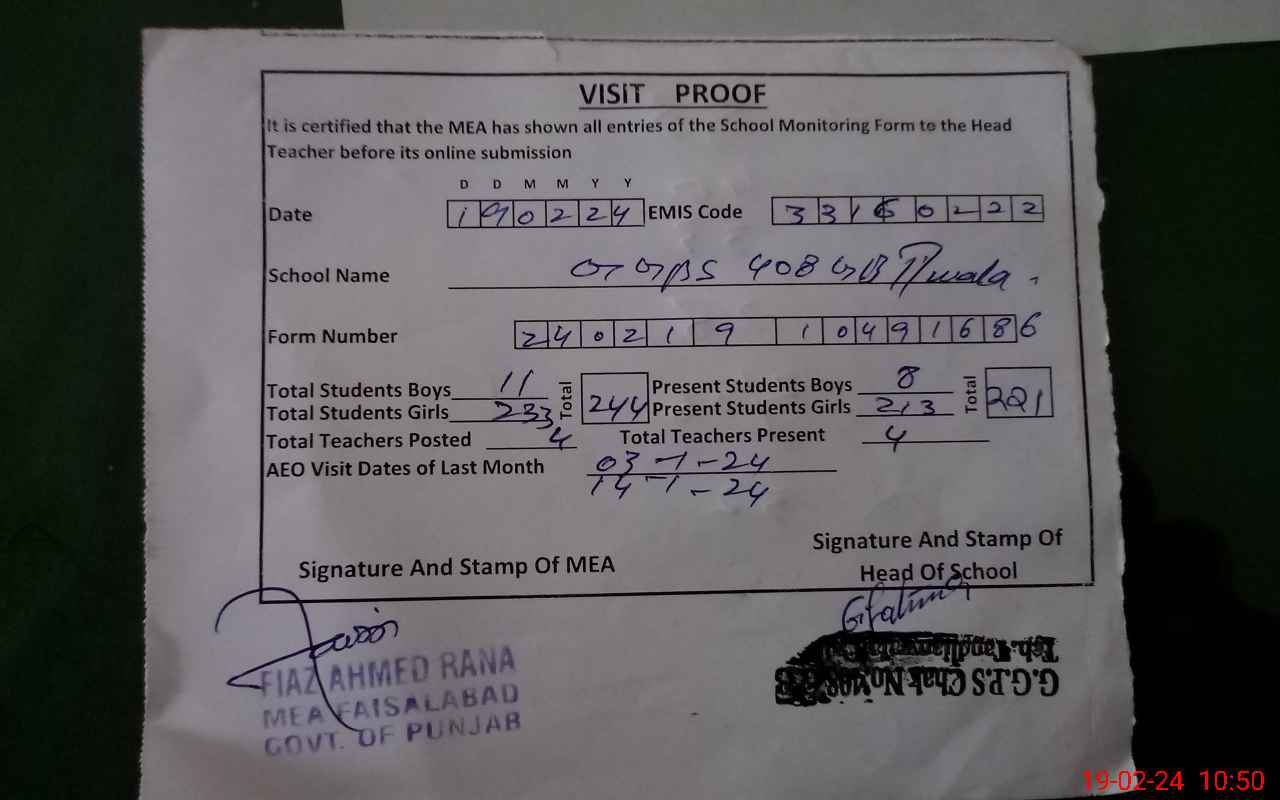 VISIT PROOF
It is certified that the MEA has shown all entries of the School Monitoring Form to the Head
Teacher before its online submission
D D M M Y Y
Date 190224 EMIS Code 33160222
School Name GGPS 408 GB
Form Number 240219 10491686
Total Students Boys 11 Total 244 Present Students Boys 8 Total 221
Total Students Girls 233 Present Students Girls 213
Total Teachers Posted 4 Total Teachers Present 4
AEO Visit Dates of Last Month 03-1-24
14-1-24
Signature And Stamp Of MEA
Signature And Stamp Of
Head Of School
G.Fatima
FIAZ AHMED RANA
MEA FAISALABAD
GOVT. OF PUNJAB
G.G.P.S Chak No.408
Teh. Tandlianwala
19-02-24 10:50